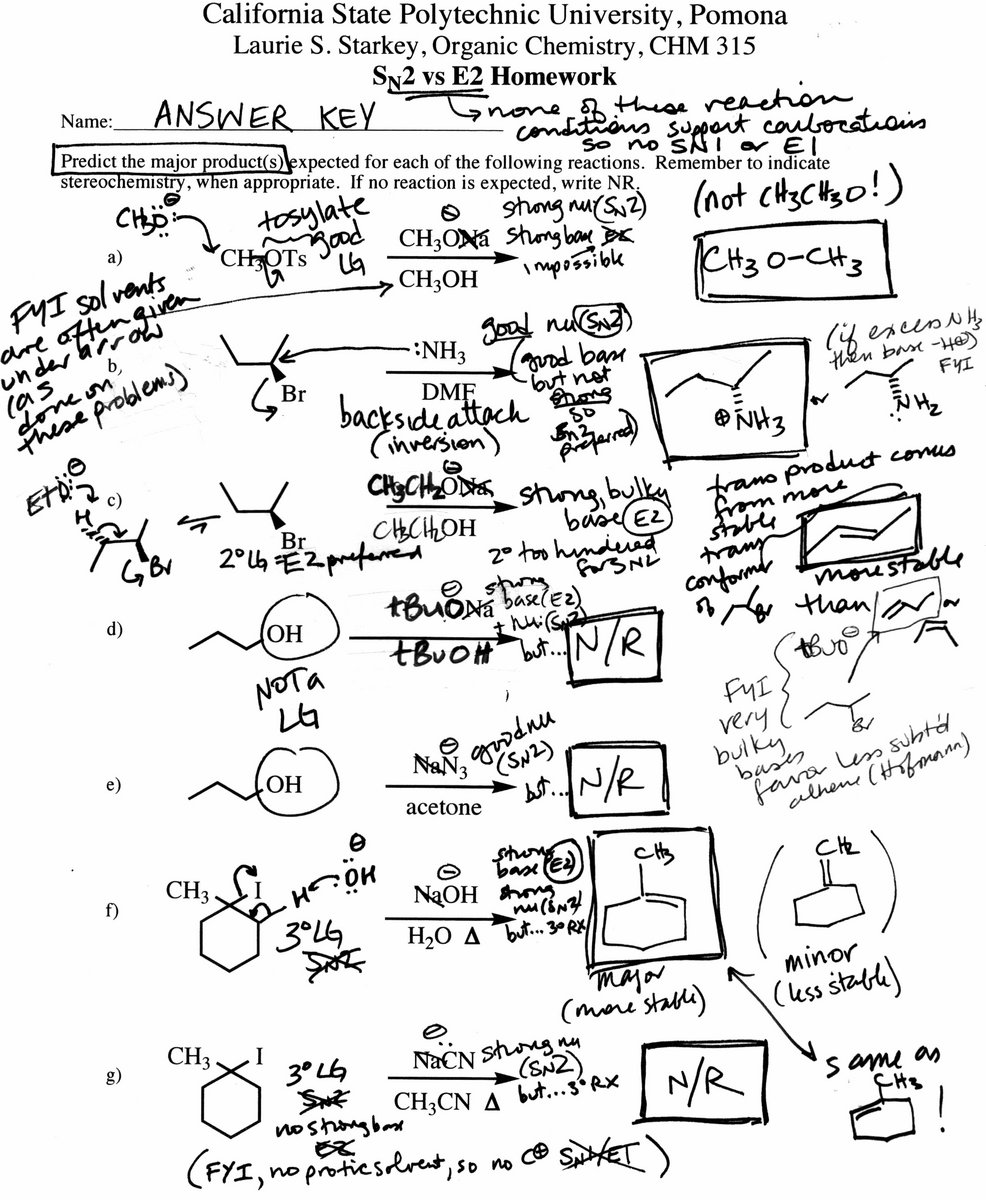 California State Polytechnic University, Pomona
Laurie S. Starkey, Organic Chemistry, CHM 315
SN2 vs E2 Homework
none of these reaction
conditions support carbocations
so no SN1 or E1
Name: ANSWER KEY
Predict the major product(s) expected for each of the following reactions. Remember to indicate
stereochemistry, when appropriate. If no reaction is expected, write NR.
(not CH3CH3O!)
CH3O:⊖
tosylate
good
LG
a)
CH3OTs
⊖
CH3ONa
CH3OH
strong nu (SN2)
strong base E2
impossible
CH3O-CH3
FYI solvents
are often given
under arrow
(as
done on
these problems)
b,
Br
:NH3
DMF
backside attack
(inversion)
good nu (SN2)
(good base
but not
strong
so
SN2
preferred)
⊕NH3
(if excess NH3
then base -H⊕)
FYI
or
NH2
EtO:⊖
H
Br
c)
Br
2° LG = E2 preferred
⊖
CH3CH2ONa
CH3CH2OH
strong, bulky
base (E2)
2° too hindered
for SN2
trans product comes
from more
stable
trans
conformer
of
Br
more stable
than
or
d)
OH
NOT a
LG
⊖
tBuONa
tBuOH
strong
base (E2)
+ nu: (SN2)
but...
N/R
FYI
very
bulky
bases
favor less subst'd
alkene (Hofmann)
tBuO⊖
Br
e)
OH
⊖
NaN3
acetone
good nu
(SN2)
but...
N/R
f)
CH3
I
H
:ÖH
⊖
3° LG
SN2
⊖
NaOH
H2O Δ
strong
base (E2)
strong
nu (SN2)
but... 3° RX
CH3
major
(more stable)
CH2
minor
(less stable)
same as
CH3
!
g)
CH3
I
3° LG
SN2
no strong base
E2
⊖
NaCN
CH3CN Δ
strong nu
(SN2)
but...3° RX
N/R
(FYI, no protic solvent, so no C⊕ SN1/E1)